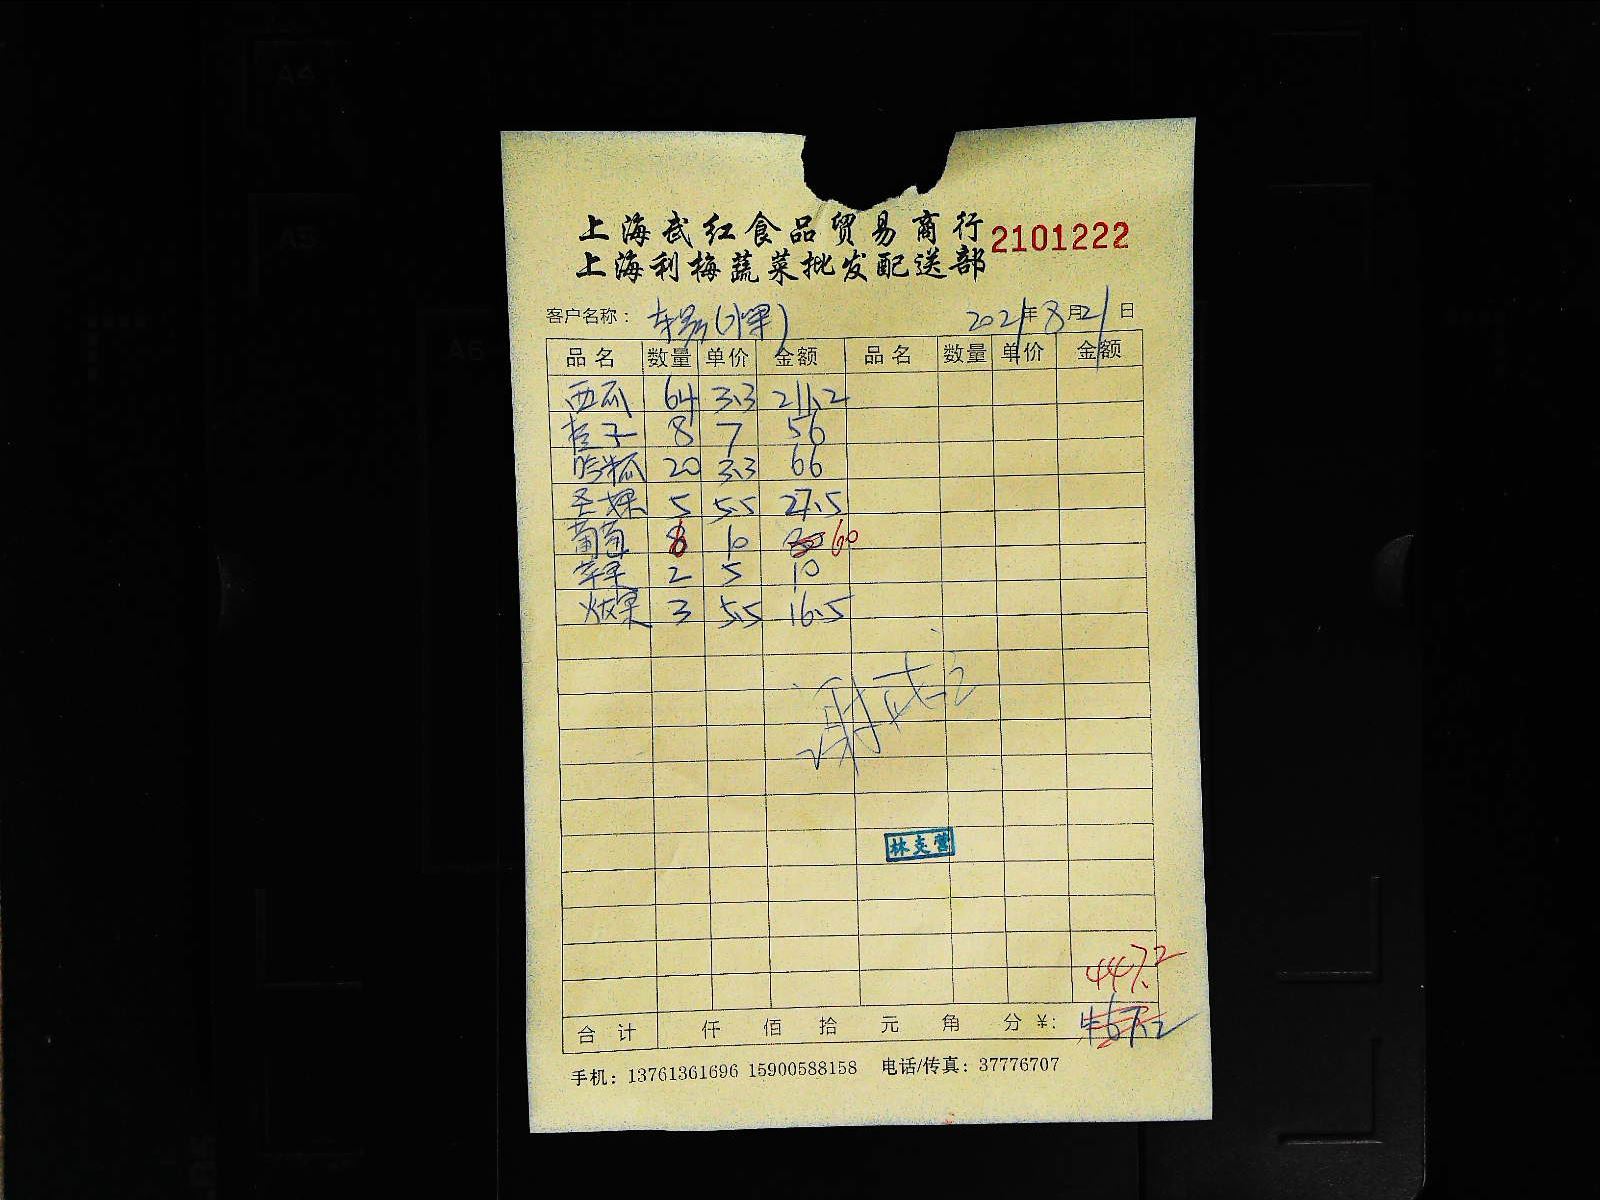 上海武红食品贸易商行 2101222
上海利梅蔬菜批发配送部
客户名称： (水果) 2021年8月21日
品名 数量 单价 金额 品名 数量 单价 金额
西瓜 64 3.3 211.2
桔子 8 7 56
哈蜜瓜 20 3.3 66
圣女果 5 5.5 27.5
葡萄 6 10 60
苹果 2 5 10
火龙果 3 5.5 16.5
林支营
447.2
合计 仟 佰 拾 元 角 分 ¥: 467.2
手机：13761361696 15900588158 电话/传真：37776707